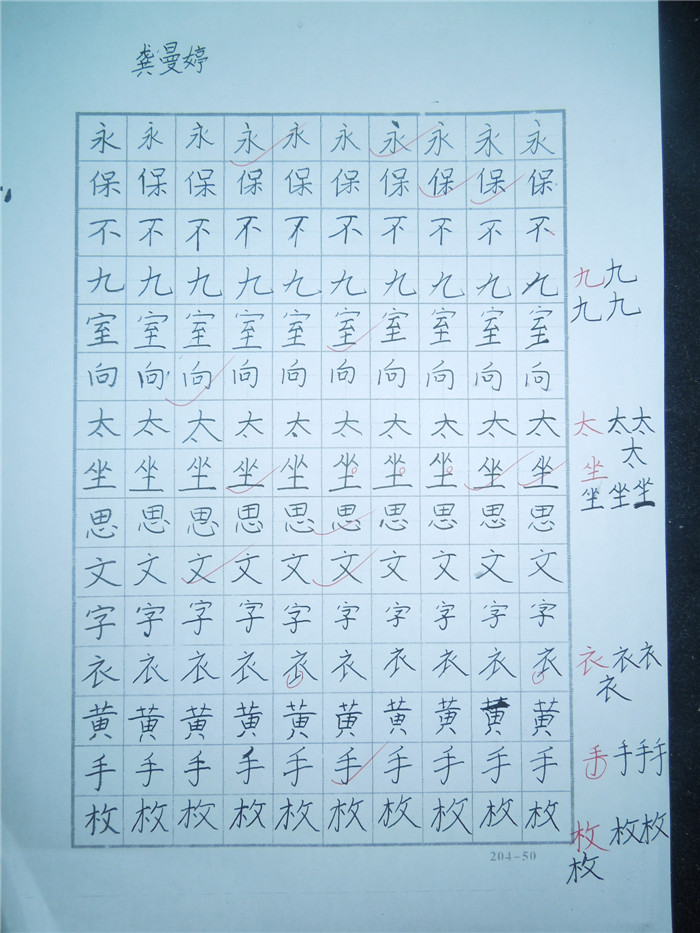 龚曼婷
永永永永永永永永永永
保保保保保保保保保保
不不不不不不不不不不
九九九九九九九九九九
九九
九九
室室室室室室室室室室
向向向向向向向向向向
太太太太太太太太太太
太太太
太
坐坐坐坐坐坐坐坐坐坐
坐
坐坐坐
思思思思思思思思思思
文文文文文文文文文文
字字字字字字字字字字
衣衣衣衣衣衣衣衣衣衣
衣衣衣
衣
黄黄黄黄黄黄黄黄黄黄
手手手手手手手手手手
手手手
枚枚枚枚枚枚枚枚枚枚
枚枚枚
枚
204-50